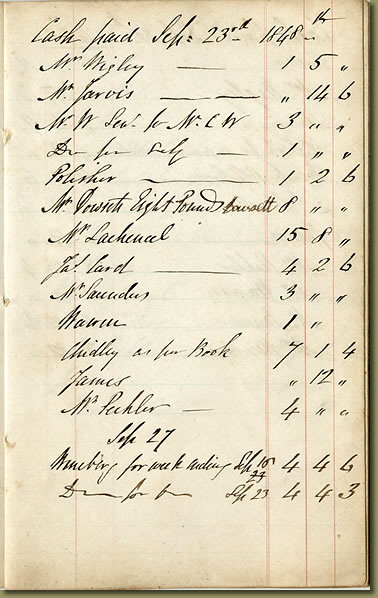 Cash paid Sep: 23rd 1848
Mr Wigley — 1 5 "
Mr Jarvis — — " 14 6
Mr W Senr for Mr C W 3 " "
Do for Self — 1 " "
Polisher — 1 2 6
Mr Dowsett Eight Pounds Dowsett 8 " "
Mr Lachenal 15 8 "
Jas Card — 4 2 6
Mr Saunders 3 " "
Warren 1 "
Chidley as per Book 7 1 4
James " 12 "
Mr — 4 " "
Sep 27
for week ending Sep 16 4 4 6
Do for Do Sep 23 4 4 3